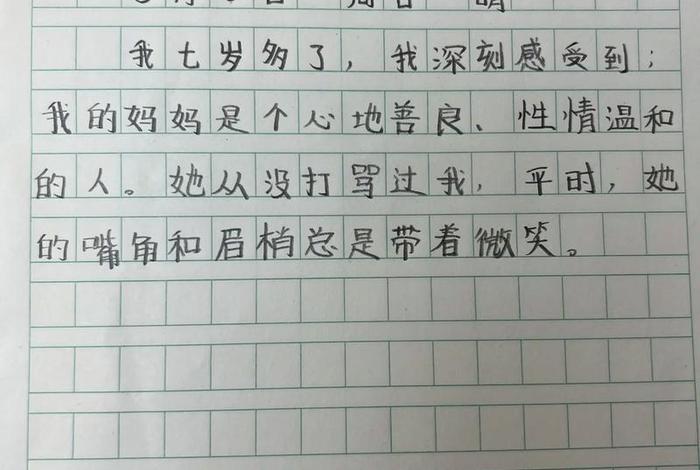 我七岁多了，我深刻感受到；
我的妈妈是个心地善良、性情温和
的人。她从没打骂过我，平时，她
的嘴角和眉梢总是带着微笑。